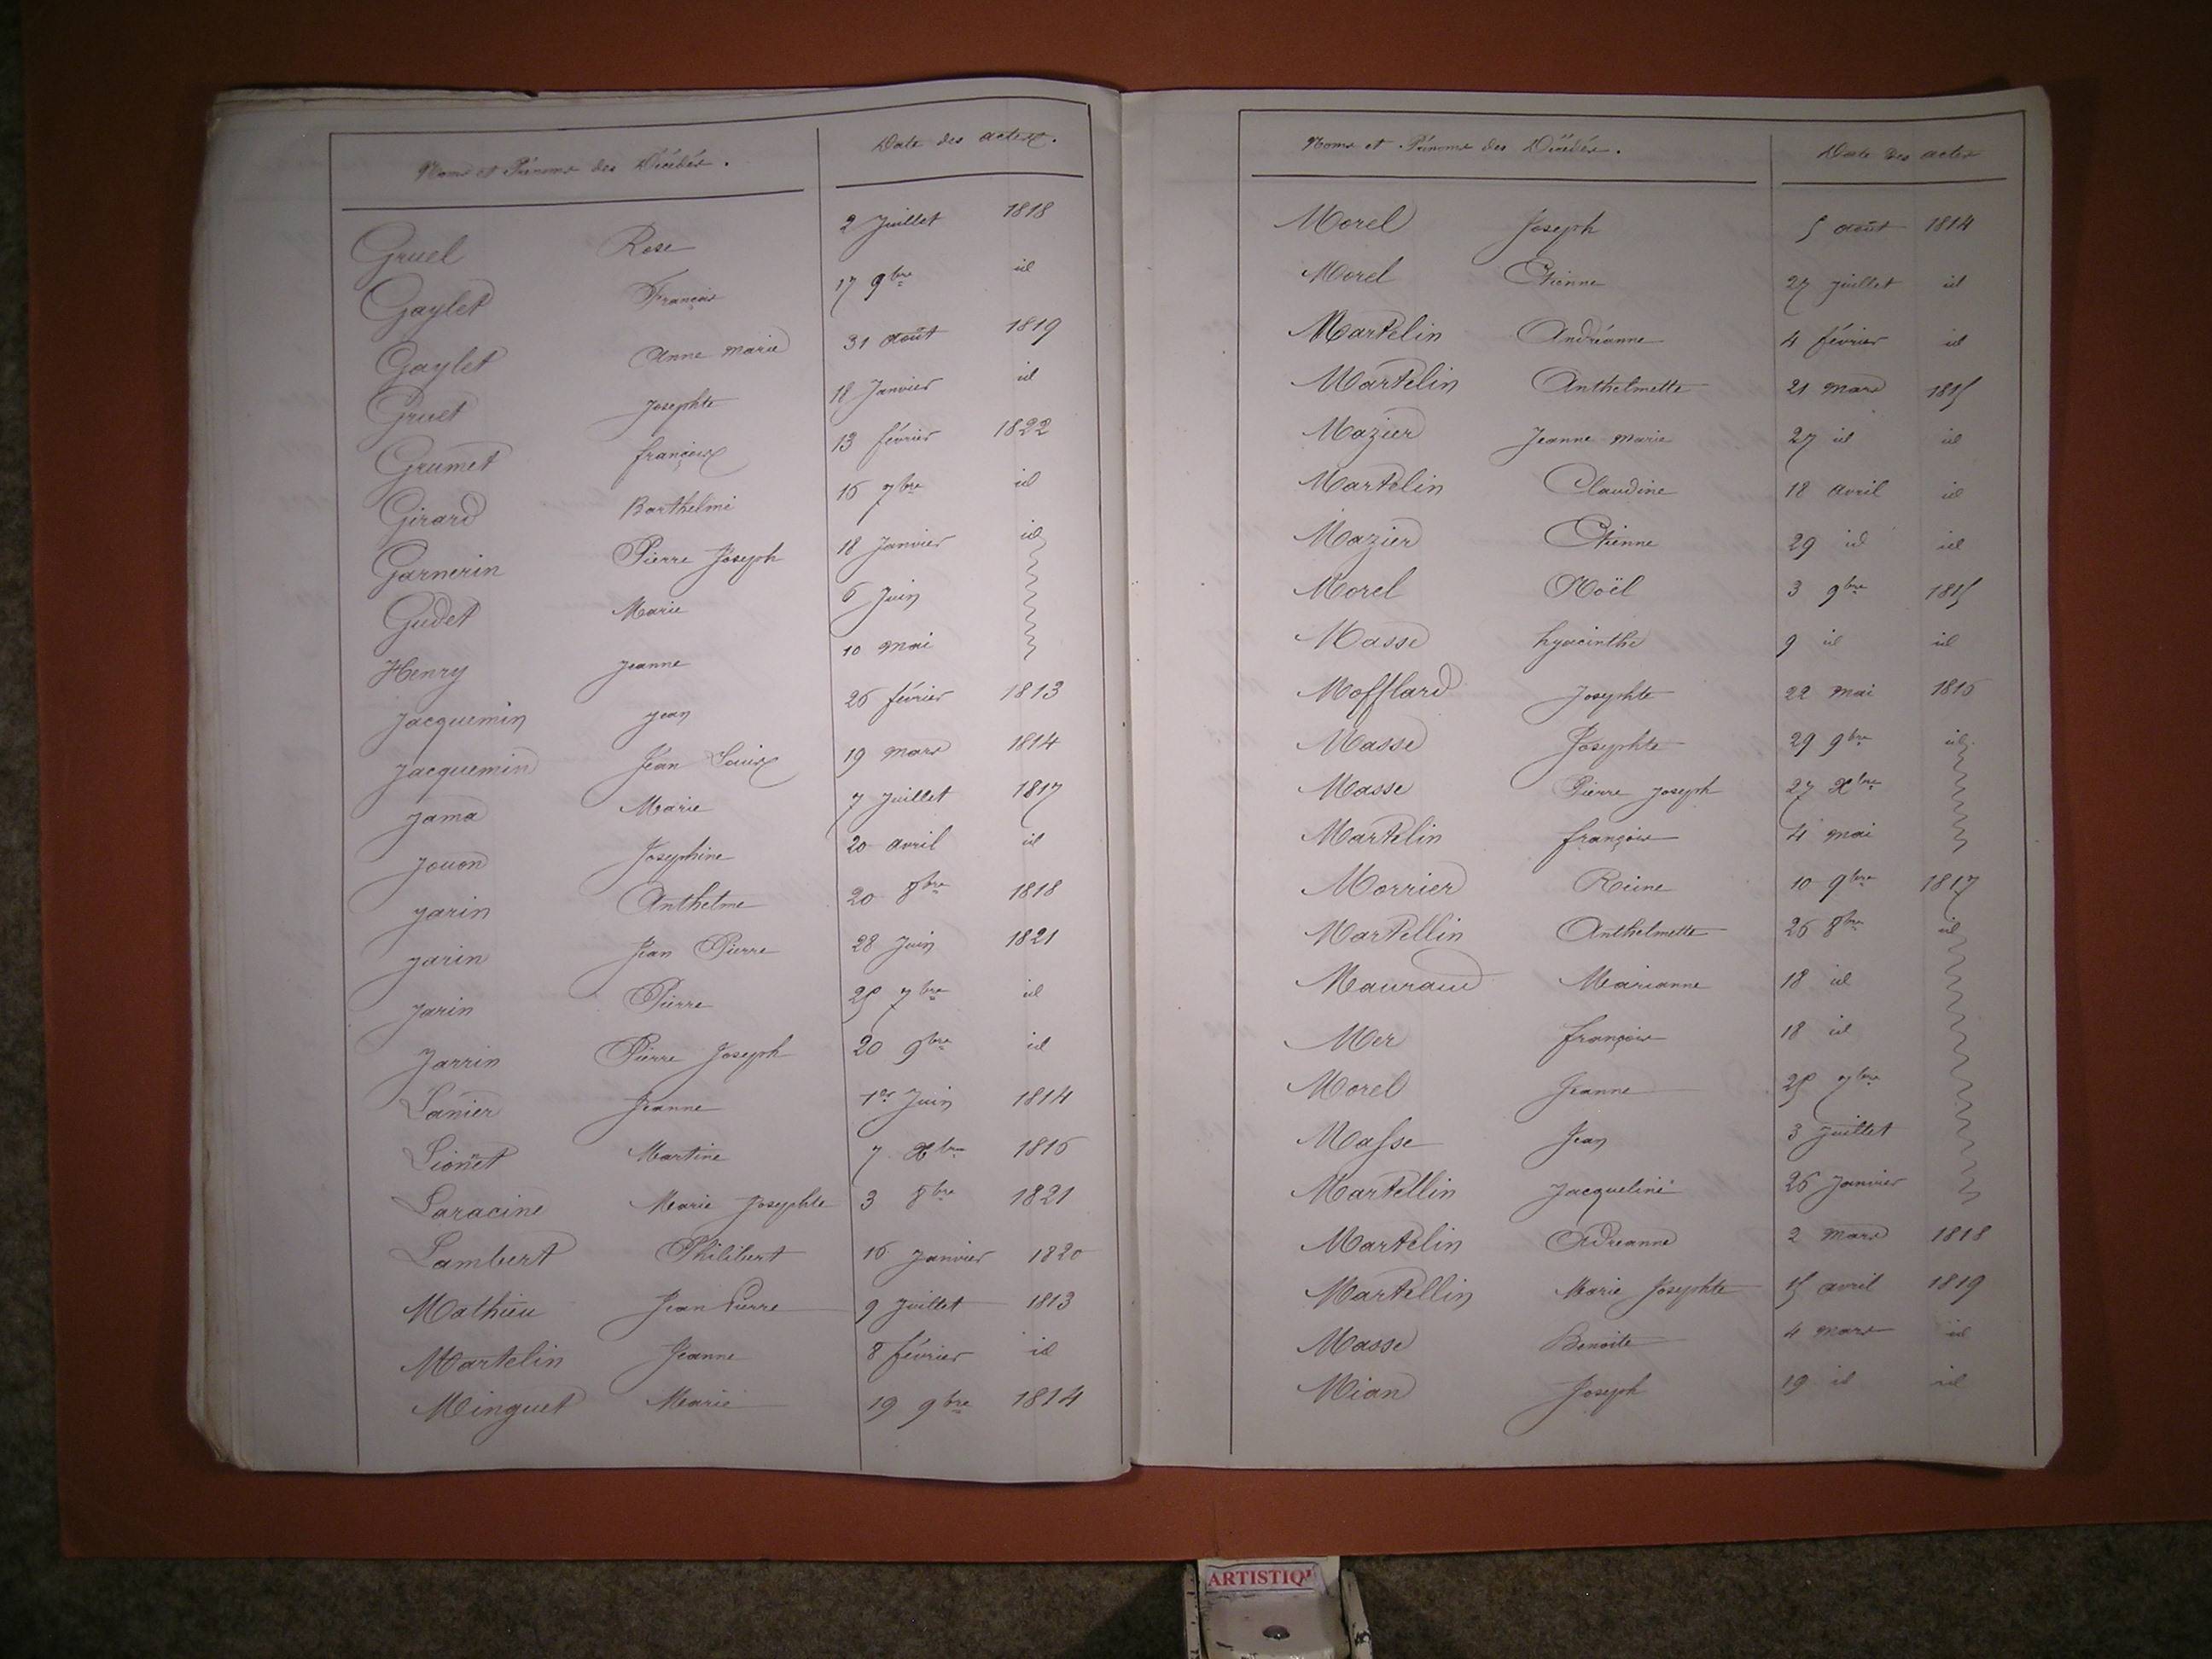 Noms et Prénoms des Décédés. Date des actes.
Gruel Rose 2 Juillet 1818
Gaylet François 17 9bre id
Gaylet Anne Marie 31 août 1819
Gruet Josephte 18 Janvier id
Grumet françois 13 février 1822
Girard Barthélmi 16 7bre id
Garnerin Pierre Joseph 18 Janvier id
Gudet Marie 6 Juin
Henry Jeanne 10 mai
Jacquemin Jean 26 février 1813
Jacquemin Jean Louis 19 mars 1814
Jama Marie 7 Juillet 1817
Jouon Josephine 20 avril id
Jarin Anthelme 20 8bre 1818
Jarin Jean Pierre 28 Juin 1821
Jarin Pierre 25 7bre id
Jarrin Pierre Joseph 20 9bre id
Lanier Jeanne 1er Juin 1814
Lionnet Martine 7 Xbre 1816
Laracine Marie Josephte 3 8bre 1821
Lambert Philibert 16 Janvier 1820
Mathieu Jean Pierre 9 Juillet 1813
Martelin Jeanne 8 février id
Minguet Marie 19 9bre 1814
Noms et Prénoms des Décédés. Date des actes
Morel Joseph 5 août 1814
Morel Etienne 27 juillet id
Martelin Andréanne 4 février id
Martelin Anthelmette 21 mars 1815
Mazier Jeanne Marie 27 id id
Martelin Claudine 18 avril id
Mazier Etienne 29 id id
Morel Noël 3 9bre 1815
Masse hyacinthe 9 id id
Mofflard Josephte 22 mai 1816
Masse Josephte 29 9bre id
Masse Pierre Joseph 27 Xbre
Martelin françois 4 mai
Morrier Reine 10 9bre 1817
Martellin Anthelmette 26 8bre id
Mauraud Marianne 18 id
Mer françois 18 id
Morel Jeanne 25 7bre
Masse Jean 3 Juillet
Martellin Jacqueline 26 Janvier
Martelin Adreanne 2 mars 1818
Martellin Marie Josephte 15 avril 1819
Masse Benoite 4 mars id
Mian Joseph 19 id id
ARTISTIQ